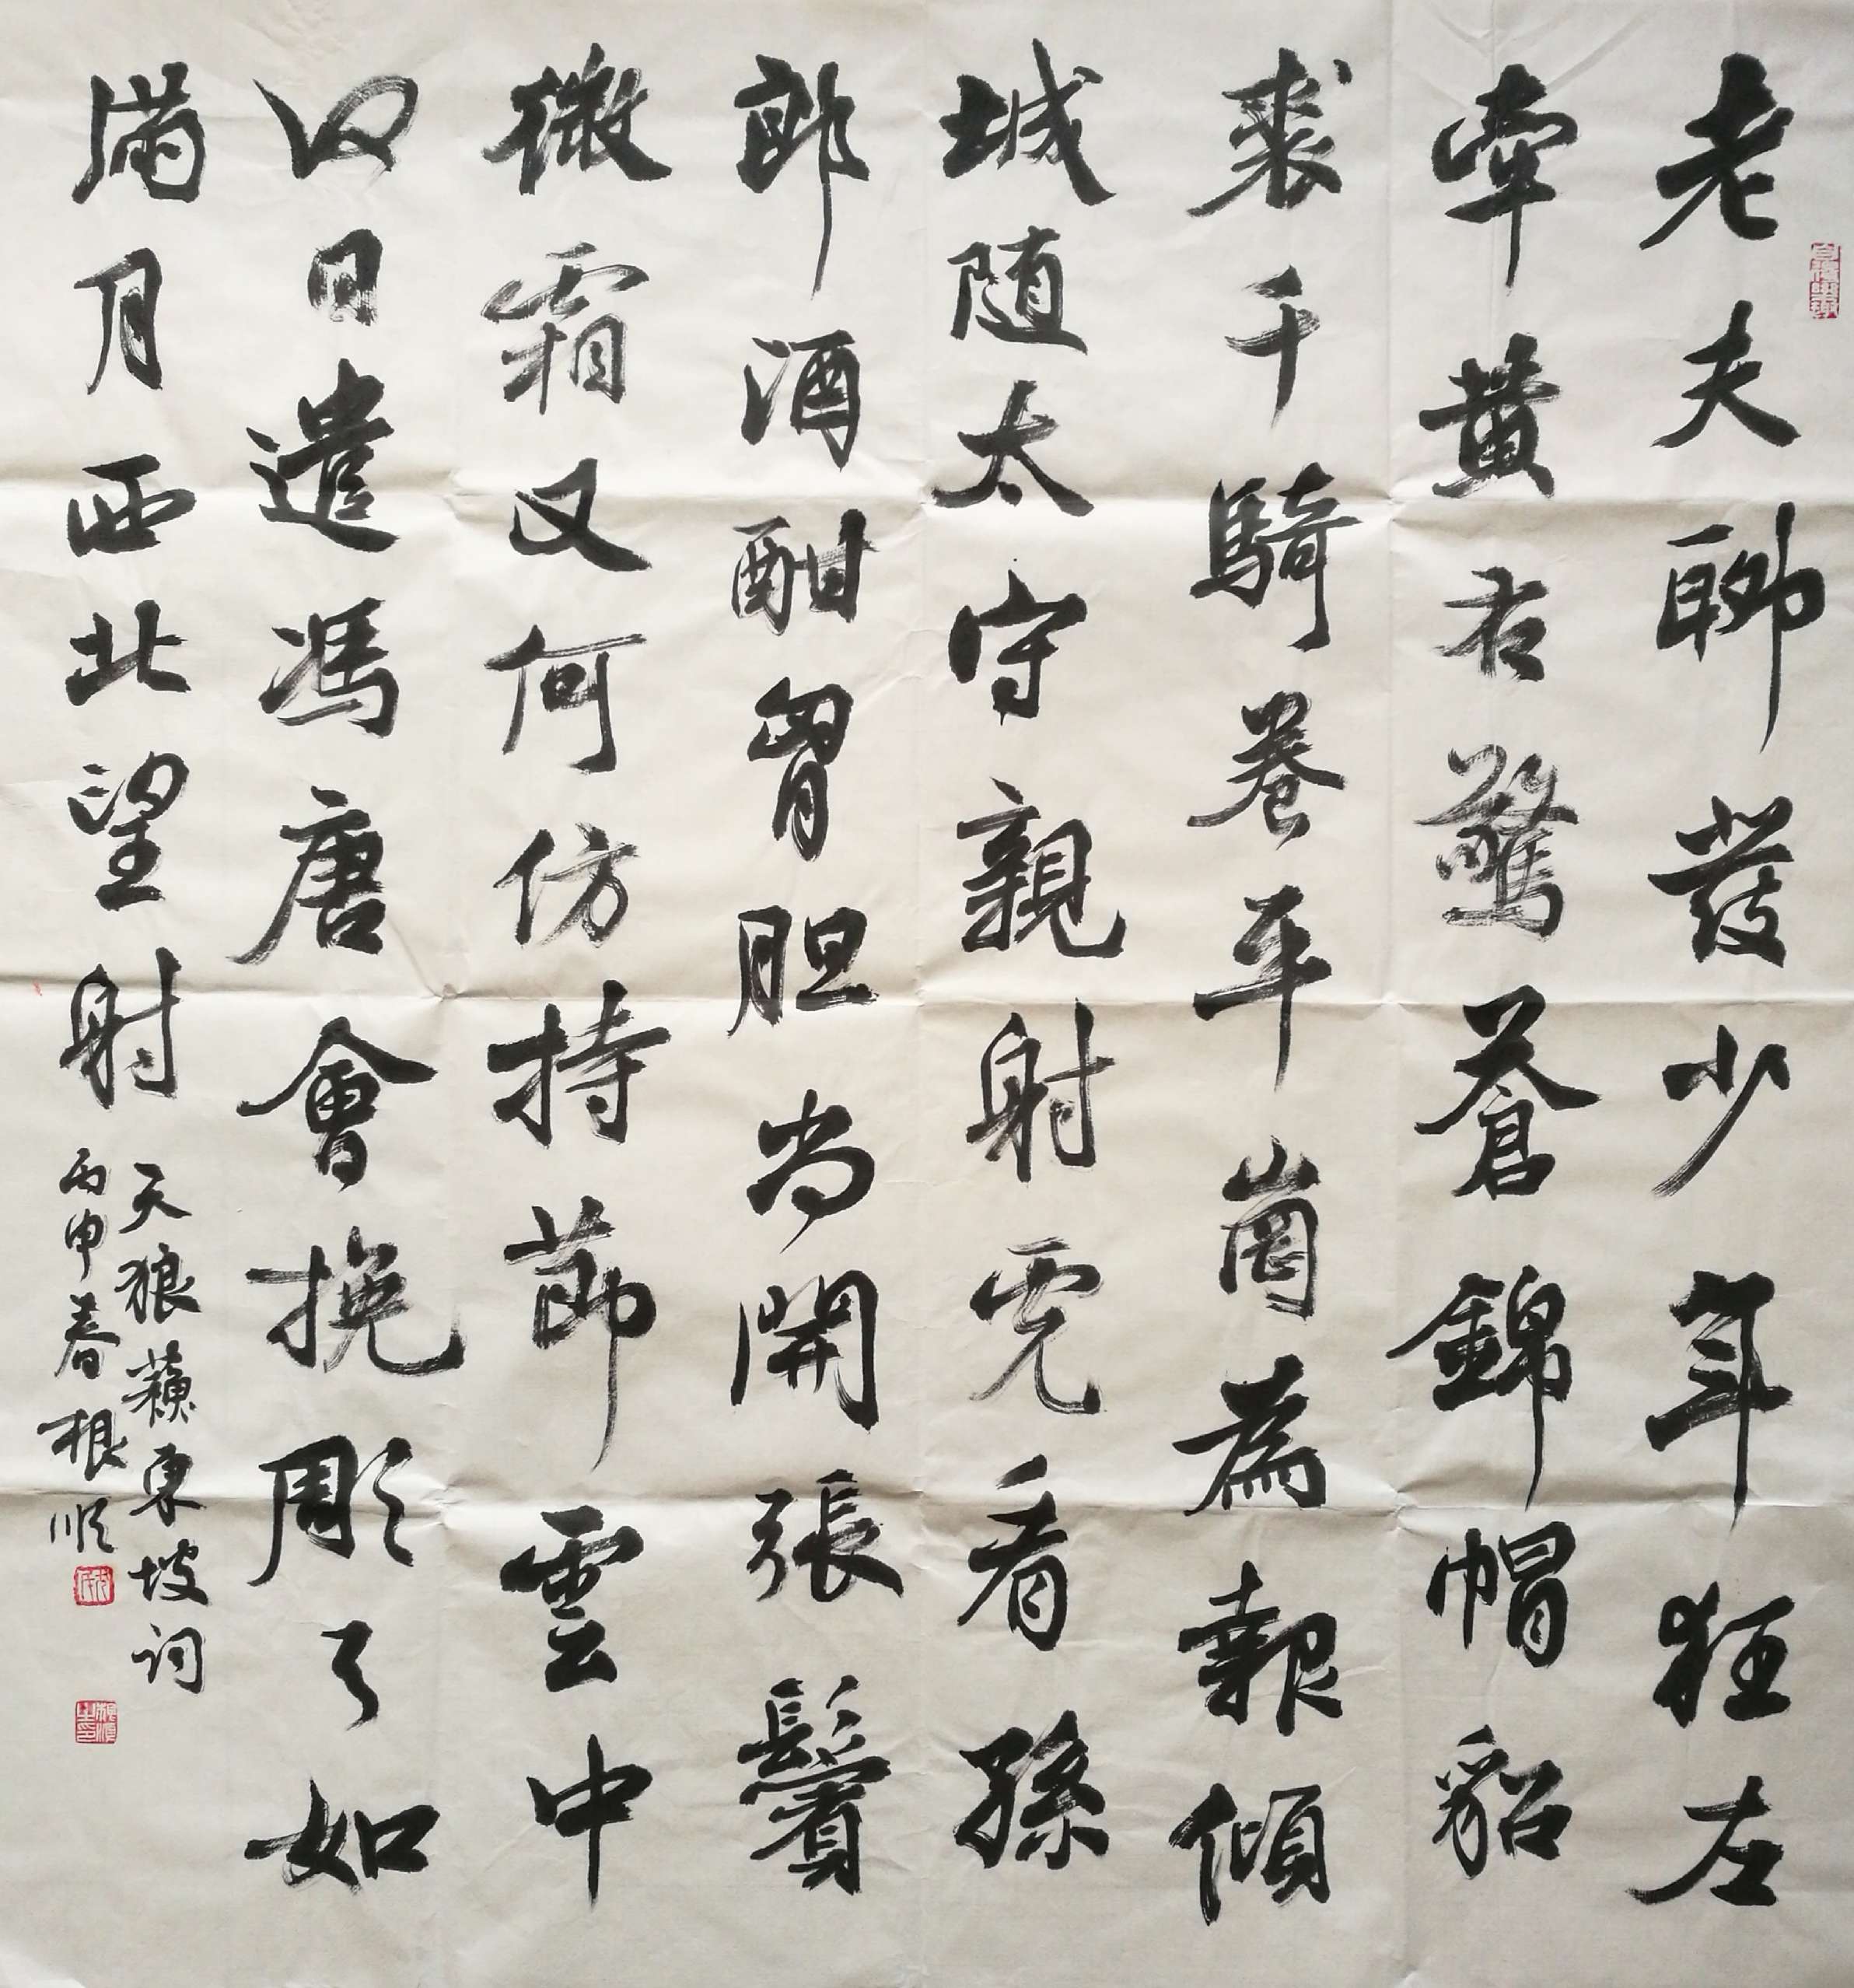 老夫聊發少年狂左
牽黃右驚蒼錦帽貂
裘千騎卷平崗為報傾
城随太守親射虎看孫
郎酒酣胷胆尚開張鬢
微霜又何仿持節雲中
何日遣馮唐會挽彫弓如
滿月西北望射
天狼蘓東坡詞
丙申春根順